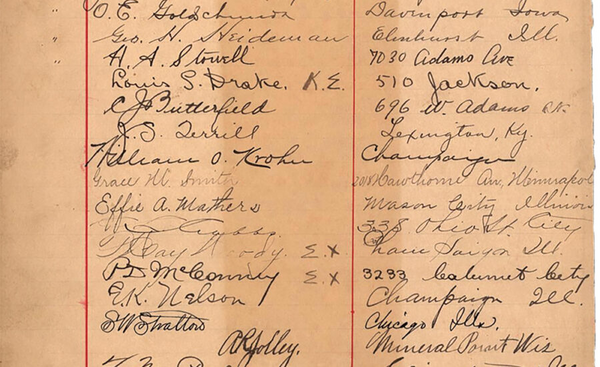 O. E. Goldschmidt Davenport Iowa
" Geo. H. Heideman Elmhurst Ill.
" H. A. Stowell 7030 Adams Ave
Louis S. Drake. K.E. 510 Jackson.
C J Butterfield 696 W. Adams
J. S. Terrill Lexington, Ky.
William O. Krohn Champaign
Grace W. Smith Hawthorne Av, Minneapol
Effie A. Mathers Mason City Illinois
338 Ohio St. City
E.X Ill.
McConney E.X 3233 Calumet City
E.K. Nelson Champaign Ill.
S W Stratton Chicago Ills.
A R Jolley. Mineral Point Wis